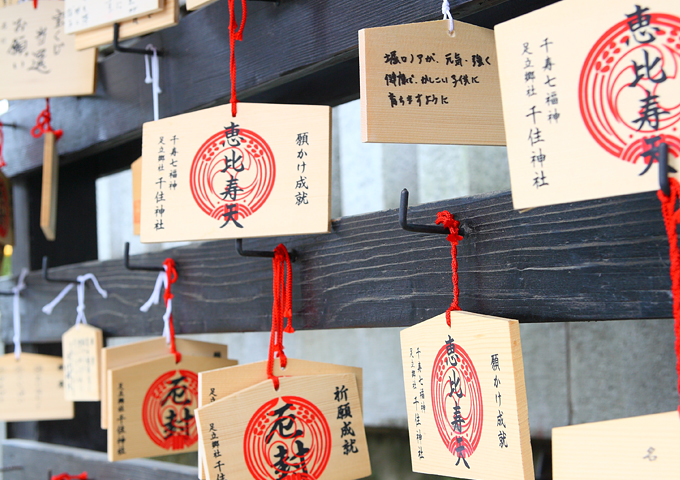 当選
お願い
堀口ノアが、元気・強く
健康で、かしこい子供に
育ちますように
千寿七福神
足立郷 千住神社
恵比寿天
願かけ成就
千寿七福神
足立郷 千住神社
恵比寿天
足立郷 千住神社
厄封
千住神社
厄封
祈願成就
千寿七福神
足立郷 千住神社
恵比寿天
願かけ成就
名